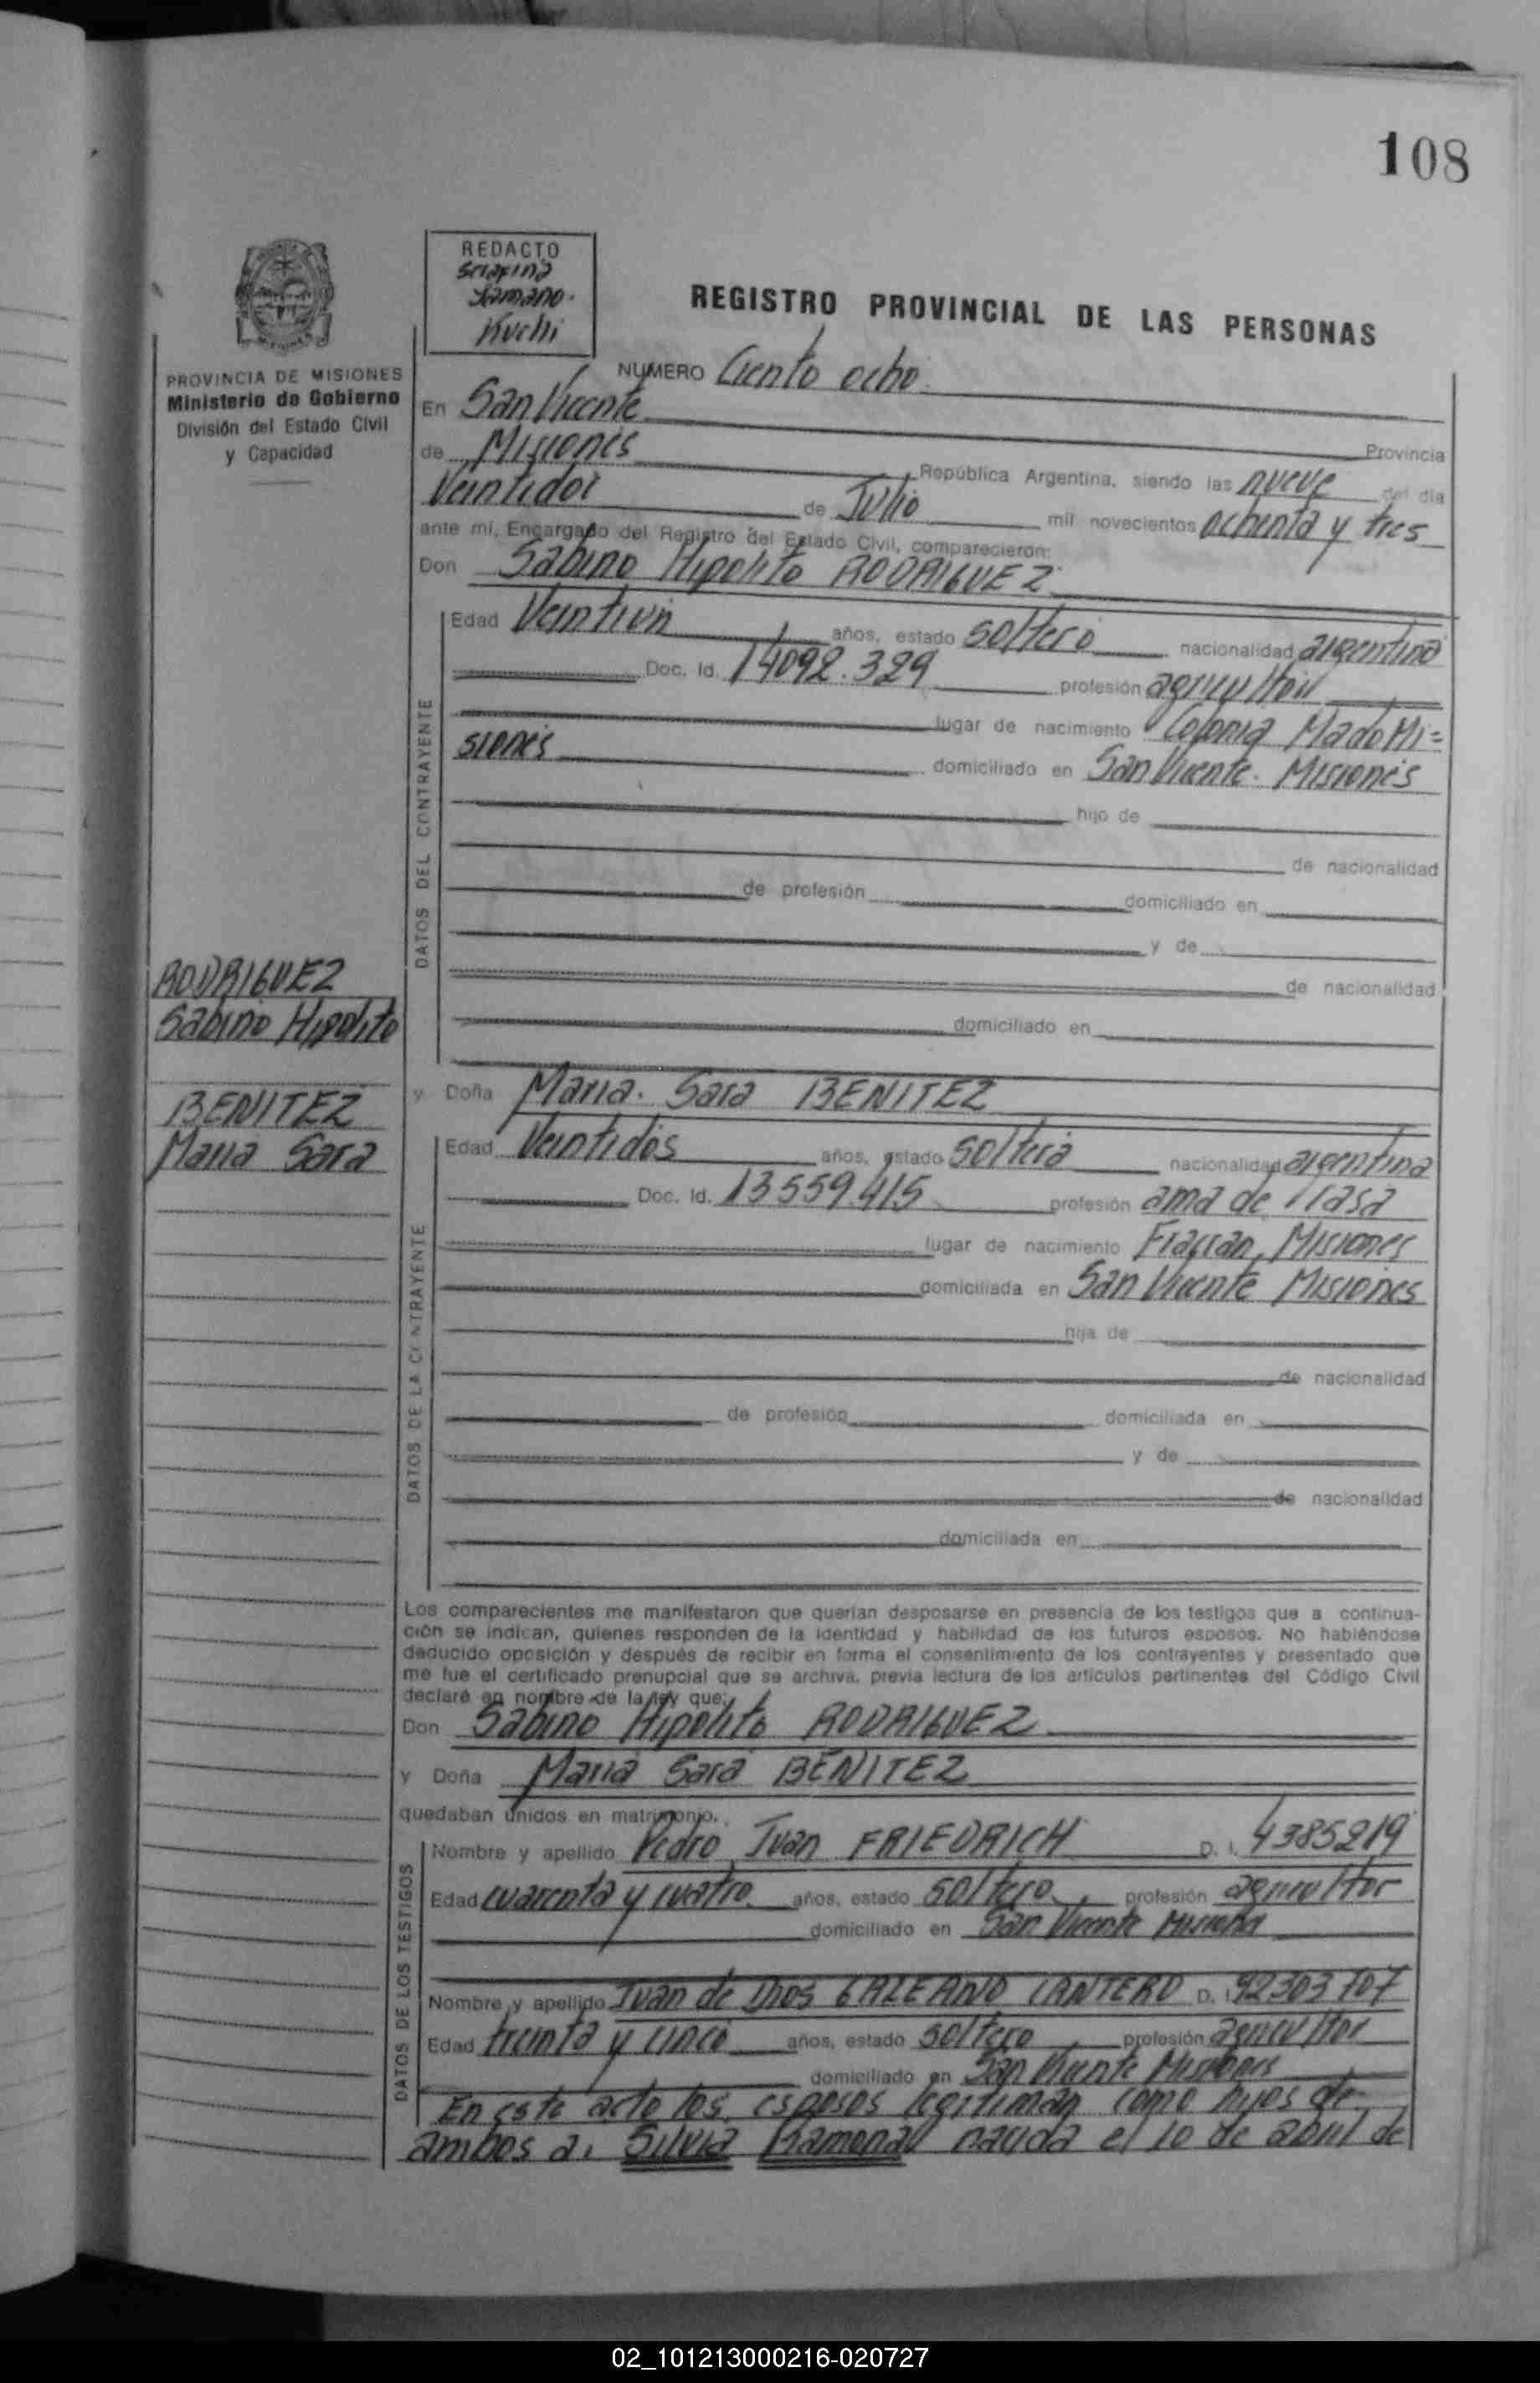 108
REDACTO
Serafina
Kuchi
REGISTRO PROVINCIAL DE LAS PERSONAS
PROVINCIA DE MISIONES
Ministerio de Gobierno
División del Estado Civil
y Capacidad
NUMERO Ciento ocho
En San Vicente
Provincia
de Misiones República Argentina, siendo las nueve del día
Veintidos de Julio mil novecientos ochenta y tres
ante mí, Encargado del Registro del Estado Civil, comparecieron:
Don Sabino Hipolito RODRIGUEZ
DATOS DEL CONTRAYENTE
Edad Veintiun años, estado soltero nacionalidad argentina
Doc. Id. 14092.329 profesión agricultor
lugar de nacimiento Colonia Mado Mi=
siones domiciliado en San Vicente. Misiones
hijo de
de nacionalidad
de profesión domiciliado en
y de
de nacionalidad
domiciliado en
RODRIGUEZ
Sabino Hipolito
BENITEZ
Maria Sara
y Doña Maria. Sara BENITEZ
DATOS DE LA CONTRAYENTE
Edad Veintidos años, estado soltera nacionalidad argentina
Doc. Id. 13559.415 profesión ama de casa
lugar de nacimiento Fracran, Misiones
domiciliada en San Vicente Misiones
hija de
de nacionalidad
de profesión domiciliada en
y de
de nacionalidad
domiciliada en
Los comparecientes me manifestaron que querían desposarse en presencia de los testigos que a continua-
ción se indican, quienes responden de la identidad y habilidad de los futuros esposos. No habiéndose
deducido oposición y después de recibir en forma el consentimiento de los contrayentes y presentado que
me fue el certificado prenupcial que se archiva, previa lectura de los artículos pertinentes del Código Civil
declaré en nombre de la ley que:
Don Sabino Hipolito RODRIGUEZ
y Doña Maria Sara BENITEZ
quedaban unidos en matrimonio.
DATOS DE LOS TESTIGOS
Nombre y apellido Pedro Juan FRIEDRICH D. I. 4385219
Edad cuarenta y cuatro años, estado soltero profesión agricultor
domiciliado en San Vicente Misiones
Nombre y apellido Juan de Dios GALEANO CANTERO D. I. 92303707
Edad treinta y cinco años, estado soltero profesión agricultor
domiciliado en San Vicente Misiones
En este acto los esposos legitiman como hijos de
ambos a: Silvia Ramona nacida el 10 de abril de
02_101213000216-020727